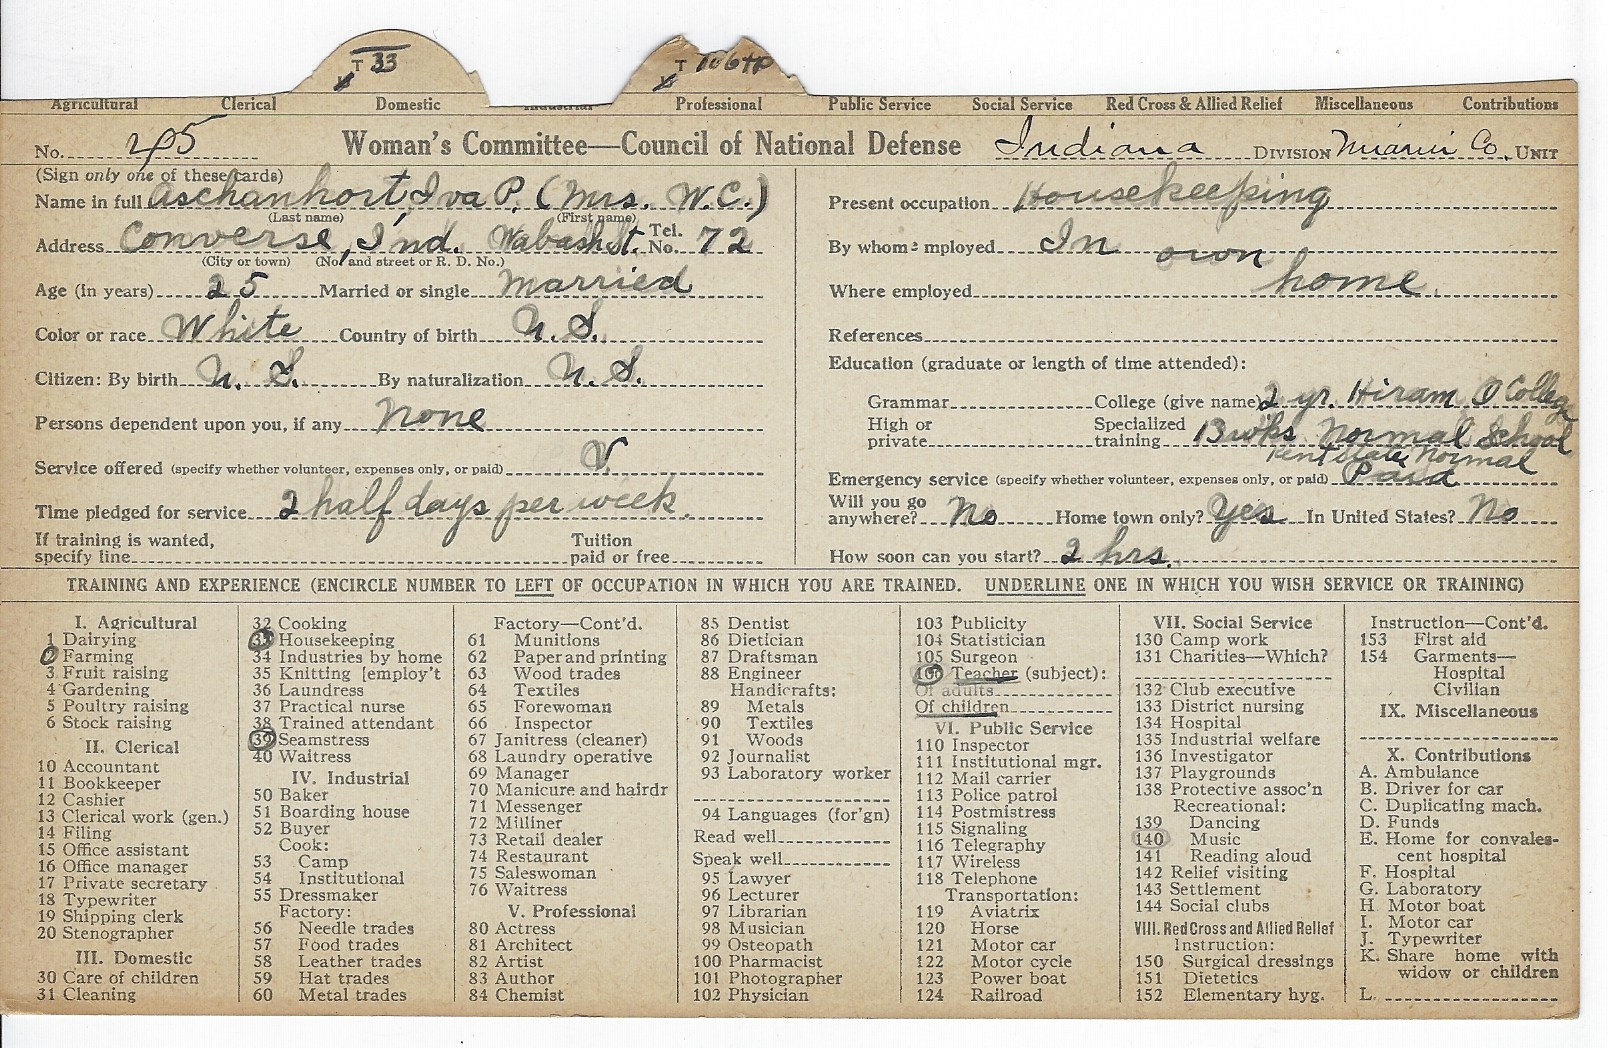 T 33
T 106
Agricultural Clerical Domestic Industrial Professional Public Service Social Service Red Cross & Allied Relief Miscellaneous Contributions
No. Woman's Committee—Council of National Defense Indiana DIVISION Miami Co. UNIT
(Sign only one of these cards)
Name in full Aschanhort, Iva P. (Mrs. W.C.)
(Last name) (First name)
Address Converse, Ind. Wabash St. Tel. No. 72
(City or town) (No. and street or R. D. No.)
Age (in years) 25 Married or single Married
Color or race White Country of birth U.S.
Citizen: By birth U. S. By naturalization U. S.
Persons dependent upon you, if any None
Service offered (specify whether volunteer, expenses only, or paid) V.
Time pledged for service 2 half days per week.
If training is wanted, specify line Tuition paid or free
Present occupation Housekeeping
By whom employed In own
Where employed home.
References
Education (graduate or length of time attended):
Grammar College (give name) 2 yr. Hiram O College
High or private Specialized training 13 wks Normal School
Kent State Normal
Emergency service (specify whether volunteer, expenses only, or paid) Paid
Will you go anywhere? No Home town only? Yes In United States? No
How soon can you start? 2 hrs.
TRAINING AND EXPERIENCE (ENCIRCLE NUMBER TO LEFT OF OCCUPATION IN WHICH YOU ARE TRAINED. UNDERLINE ONE IN WHICH YOU WISH SERVICE OR TRAINING)
I. Agricultural
1 Dairying
2 Farming
3 Fruit raising
4 Gardening
5 Poultry raising
6 Stock raising
II. Clerical
10 Accountant
11 Bookkeeper
12 Cashier
13 Clerical work (gen.)
14 Filing
15 Office assistant
16 Office manager
17 Private secretary
18 Typewriter
19 Shipping clerk
20 Stenographer
III. Domestic
30 Care of children
31 Cleaning
32 Cooking
33 Housekeeping
34 Industries by home
35 Knitting [employ't
36 Laundress
37 Practical nurse
38 Trained attendant
39 Seamstress
40 Waitress
IV. Industrial
50 Baker
51 Boarding house
52 Buyer
Cook:
53 Camp
54 Institutional
55 Dressmaker
Factory:
56 Needle trades
57 Food trades
58 Leather trades
59 Hat trades
60 Metal trades
Factory—Cont'd.
61 Munitions
62 Paper and printing
63 Wood trades
64 Textiles
65 Forewoman
66 Inspector
67 Janitress (cleaner)
68 Laundry operative
69 Manager
70 Manicure and hairdr
71 Messenger
72 Milliner
73 Retail dealer
74 Restaurant
75 Saleswoman
76 Waitress
V. Professional
80 Actress
81 Architect
82 Artist
83 Author
84 Chemist
85 Dentist
86 Dietician
87 Draftsman
88 Engineer
Handicrafts:
89 Metals
90 Textiles
91 Woods
92 Journalist
93 Laboratory worker
94 Languages (for'gn)
Read well
Speak well
95 Lawyer
96 Lecturer
97 Librarian
98 Musician
99 Osteopath
100 Pharmacist
101 Photographer
102 Physician
103 Publicity
104 Statistician
105 Surgeon
106 Teacher (subject):
Of adults
Of children
VI. Public Service
110 Inspector
111 Institutional mgr.
112 Mail carrier
113 Police patrol
114 Postmistress
115 Signaling
116 Telegraphy
117 Wireless
118 Telephone
Transportation:
119 Aviatrix
120 Horse
121 Motor car
122 Motor cycle
123 Power boat
124 Railroad
VII. Social Service
130 Camp work
131 Charities—Which?
132 Club executive
133 District nursing
134 Hospital
135 Industrial welfare
136 Investigator
137 Playgrounds
138 Protective assoc'n
Recreational:
139 Dancing
140 Music
141 Reading aloud
142 Relief visiting
143 Settlement
144 Social clubs
VIII. Red Cross and Allied Relief
Instruction:
150 Surgical dressings
151 Dietetics
152 Elementary hyg.
Instruction—Cont'd.
153 First aid
154 Garments—
Hospital
Civilian
IX. Miscellaneous
X. Contributions
A. Ambulance
B. Driver for car
C. Duplicating mach.
D. Funds
E. Home for convales-
cent hospital
F. Hospital
G. Laboratory
H Motor boat
I. Motor car
J. Typewriter
K. Share home with
widow or children
L.